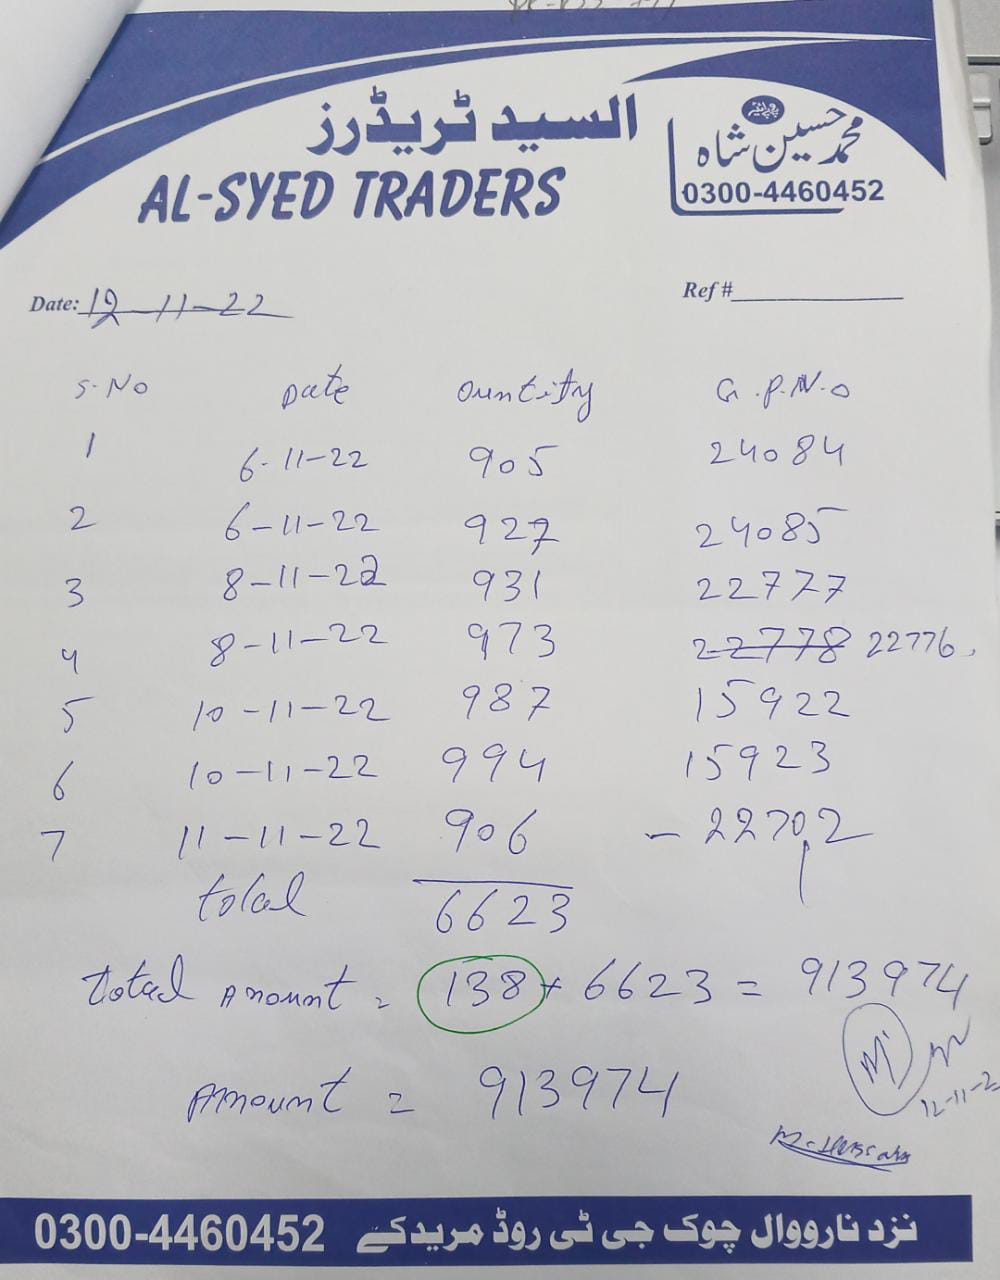 السید ٹریڈرز
AL-SYED TRADERS
پروپرائیٹر
محمد حسین شاہ
0300-4460452
Date: 12-11-22
Ref #
S.No Date Quntity G.P.N.o
1 6-11-22 905 24084
2 6-11-22 927 24085
3 8-11-22 931 22777
4 8-11-22 973 22778 22776
5 10-11-22 987 15922
6 10-11-22 994 15923
7 11-11-22 906 - 22702
total 6623
total Amount = 138 + 6623 = 913974
Amount = 913974
12-11-2
M-Hussain
0300-4460452 نزد نارووال چوک جی ٹی روڈ مریدکے